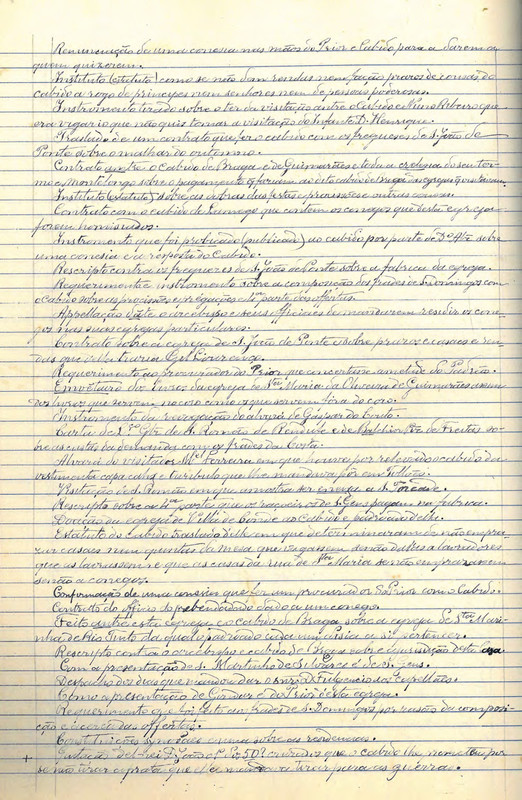 Renunciação de uma conesia nas mãos do Prior e Cabido para a darem a
quem quizerem.
Instituto (estatuto) como se não dem rendas nem fação prazos de cousas do
cabido a rogo de principes nem senhores nem de pessoas poderosas.
Instrumento tirado sobre o ter da visitação antre o Cabido e Nuno Ribeiro que
era vigario que não quis tomar a visitação do Infante D. Henrique.
Traslado de um contrato que fez o cabido com os fregueses de S. João de
Ponte sobre o malhar do outomno.
Contrato entre o Cabido de Braga e de Guimarães e toda a crelesia do seu ter-
mo e Montelongo sobre o pagamento
Instituto (estatuto) sobre as obras das festas e procissões e outras cousas.
Contrato com o cabido de Lamego que contem os conegos que desta egreja
forem
Instromento que foi probicado (publicado) ao cabido por parte de sobre
uma conesia e a resposta do Cabido.
Rescripto contra os fregueses de S. João de Ponte sobre a fabrica da egreja.
Requerimento e instromento sobre a composição dos frades de S. Domingos com
o Cabido sobre as procissões e pregações e parte das ofertas.
Appellação ante o arcebispo e seus officiaes de mandarem residir os cone-
gos nas suas egrejas particulares.
Contrato sobre a egreja de S. João de Ponte e sobre prazos e casaes e ren-
das que Gil Lourenço.
Requerimento ao procurador do Prior que concertem a metade do Padrão.
dos livros da egreja de Nta Maria da Oliveira de Guimarães assim
dos livros que servem no coro como os que servem fora do coro.
Instrumento da revogação do alvará de Gaspar do Couto.
Carta de de S. Romão de Rendufe e de de Freitas so-
bre as custas da demanda com os frades da Costa.
Alvará do visitador Mel Ferreira em que houve por relevado o cabido da
vestimenta capa calix e turibulo que lhe mandava pôr em Tellões.
Visitação de S. Romão em que mostra ser anexa a S. Torcade.
Rescripto sobre as parte que os raçoeiros de S. Gens pagam na fabrica.
Doação da egreja de Villa de Conde ao Cabido e padroado della.
Estatuto do Cabido trasladado em que determinaram de não empra-
zar casaes nem quintãs da mesa que vagassem senão a lavradores
que as lavrassem e que as casas da rua de Nta Maria se não emprazassem
senão a conegos.
Confirmação de uma conesia que fez um procurador do Prior com o Cabido.
Contrato do officio do prebendado dado a um conego.
Feito outro desta egreja e o Cabido de Braga sobre a egreja de Sta Mari-
nha de Rio Tinto da qual o padroado cada um dizia a si pertencer.
Rescripto contra o arcebispo e cabido de Braga sobre a visitação desta Casa
Com a presentação de S. Martinho de Silvares e de S. Gens.
Despacho dos dias que mandou dar o snr. D. Fulgencio aos capellães.
Como a presentação de Gondar é do Prior desta egreja.
Requerimento que foi feito aos frades de S. Domingos por razão da composi-
ção e acerca das offertas.
Constituições synodaes e uma sobre as residencias.
+ d'el-rei D. João em diz que o cabido lhe prometteu por
se não tirar a prata que elle mandava tirar para as guerras.